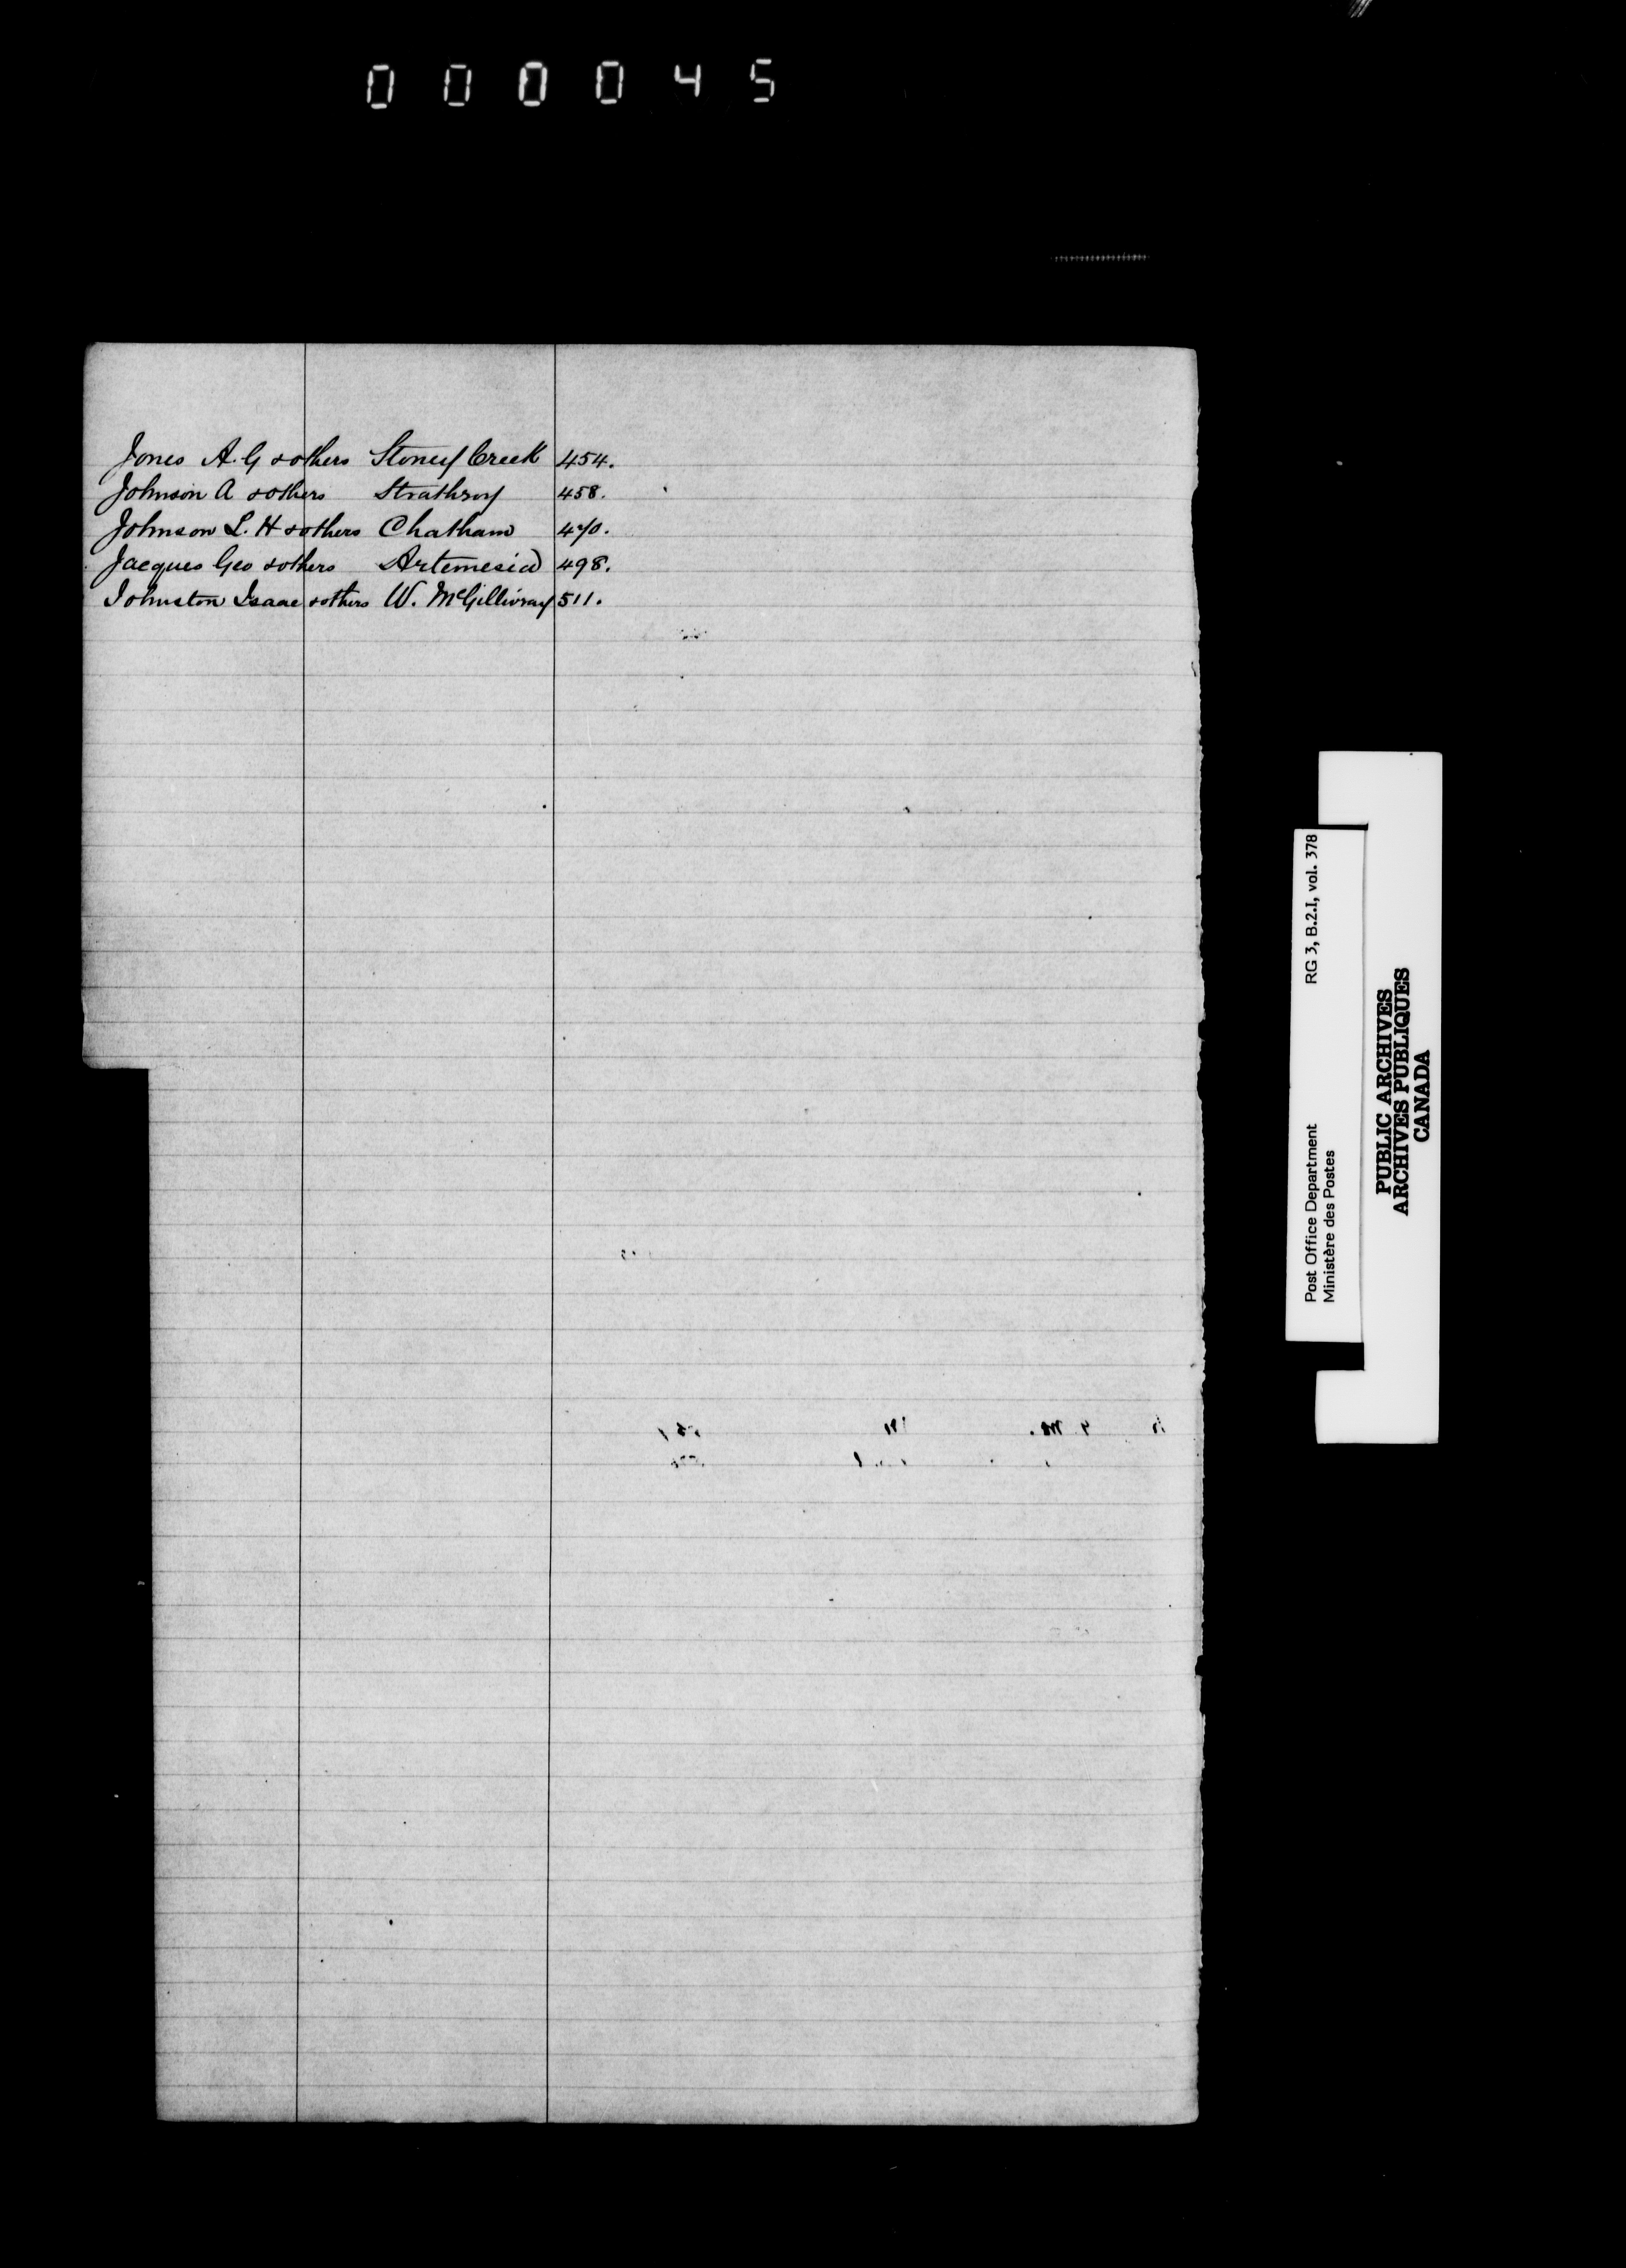 000045
Jones A. G & others Stoney Creek 454.
Johnson A & others Strathroy 458.
Johnson L. H & others Chatham 470.
Jacques Geo & others Artemesia 498.
Johnston Isaac & others W. McGillivray 511.
RG 3, B.2.I, vol. 378
Post Office Department
Ministère des Postes
PUBLIC ARCHIVES
ARCHIVES PUBLIQUES
CANADA